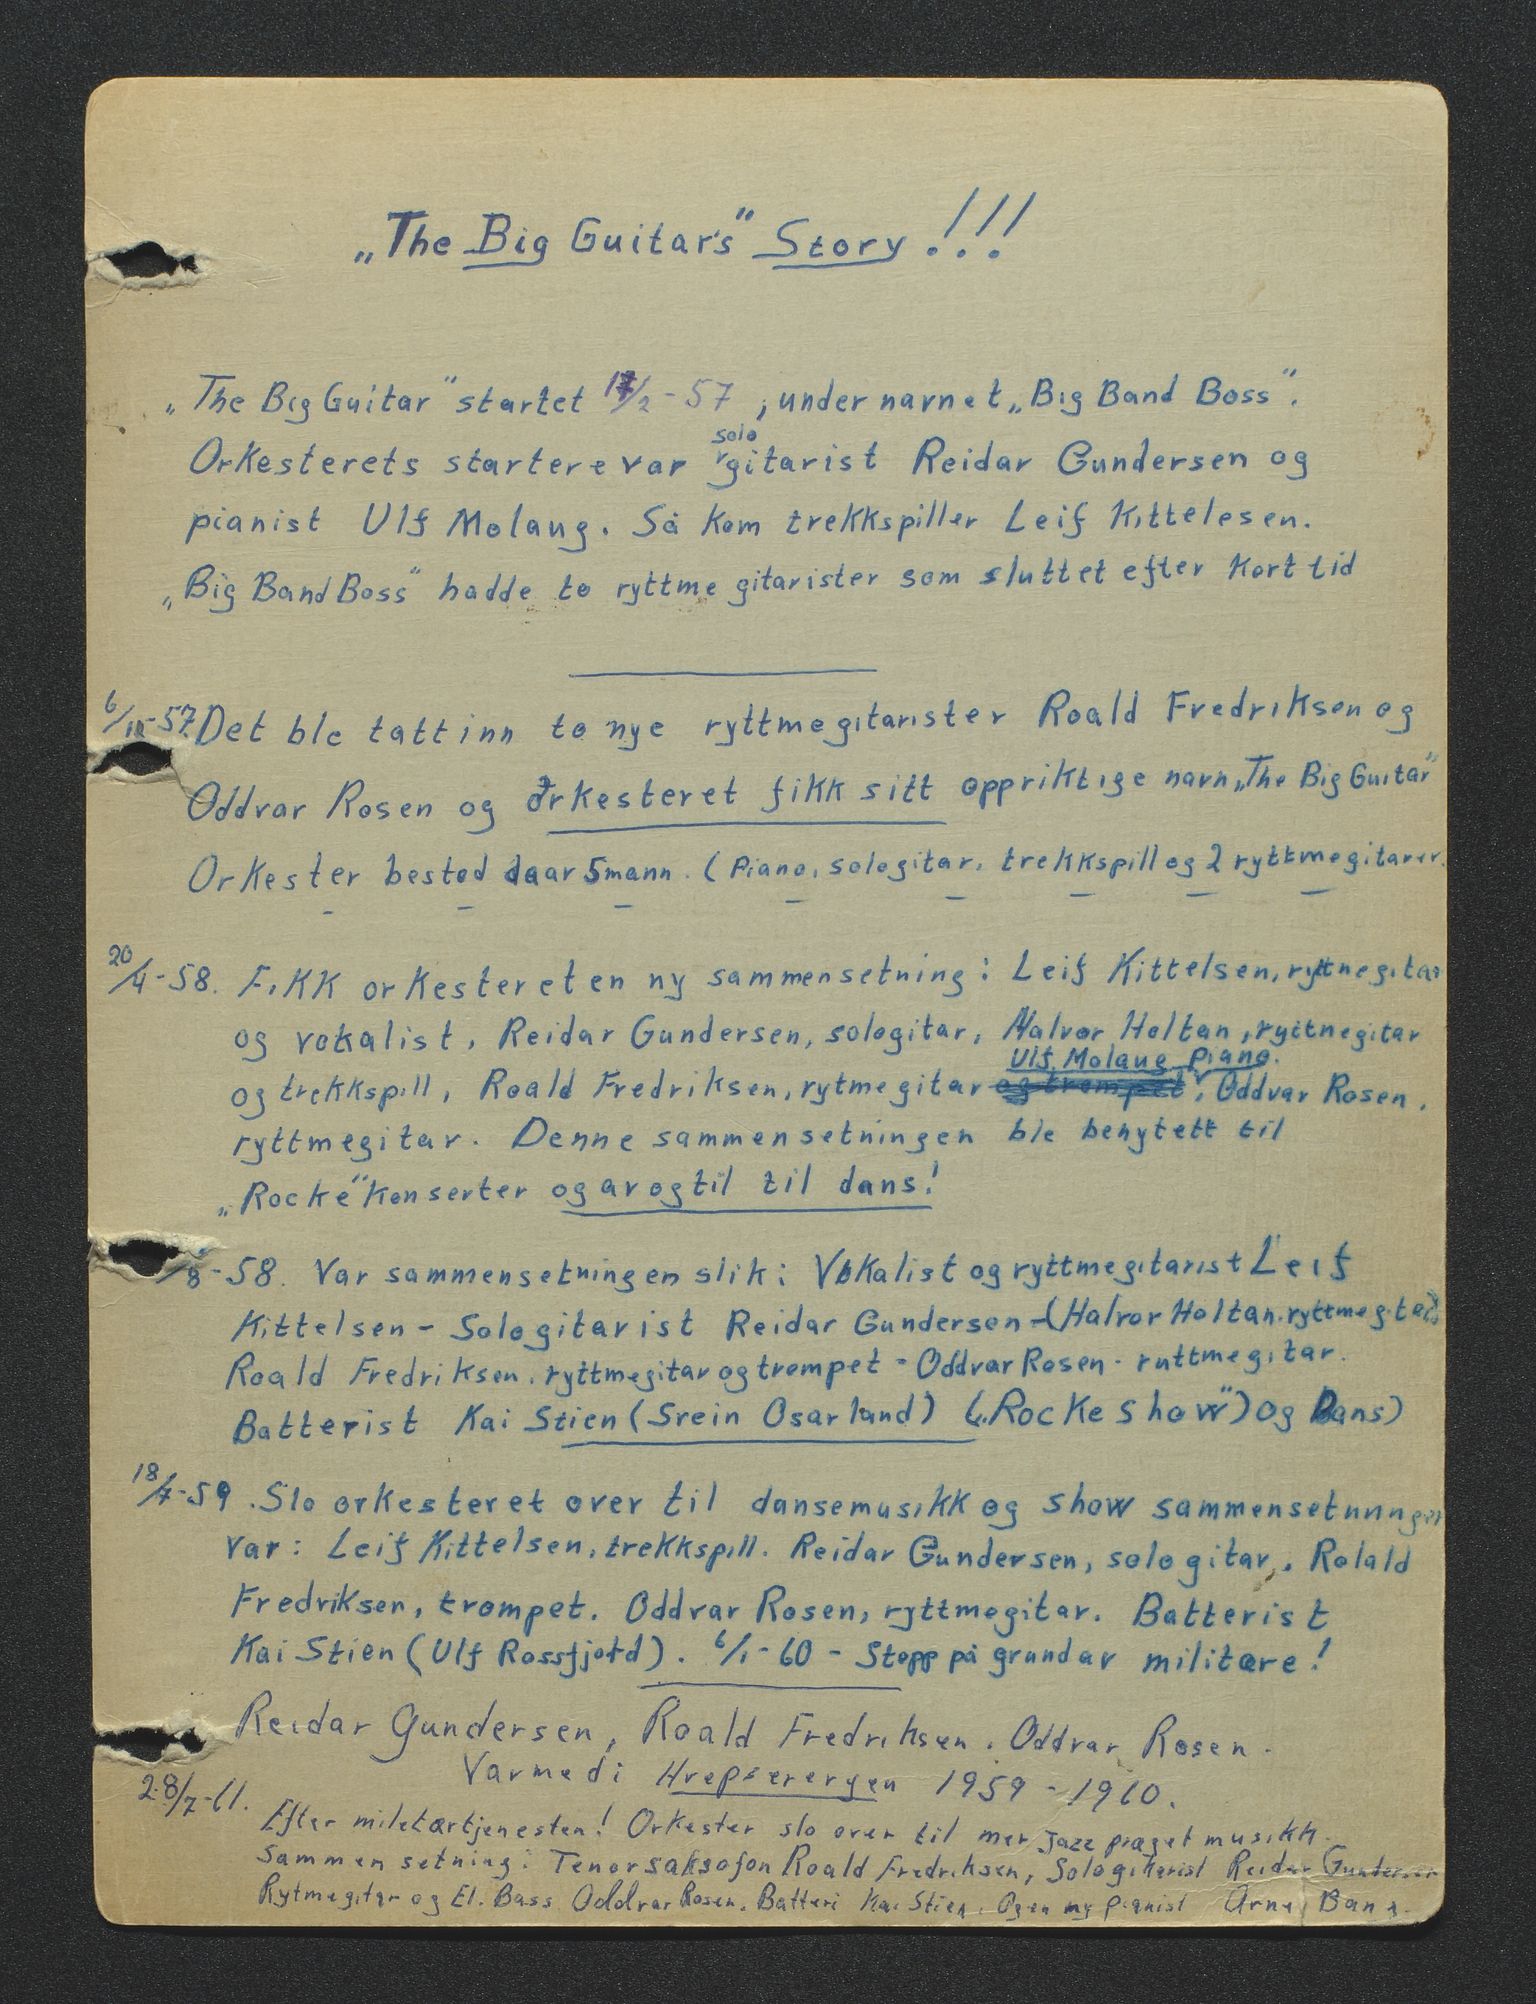 „The Big Guitar's" Story !!!
„The Big Guitar" startet 17/2-57, under navnet „Big Band Boss".
Orkesterets startere var solo gitarist Reidar Gundersen og
pianist Ulf Molaug. Så kom trekkspiller Leif Kittelesen.
„Big Band Boss" hadde to ryttme gitarister som sluttet efter kort tid
6/11-57. Det ble tatt inn to nye ryttmegitarister Roald Fredriksen og
Oddvar Rosen og Orkesteret fikk sitt oppriktige navn „The Big Guitar"
Orkester bestod da av 5 mann. (Piano, sologitar, trekkspill og 2 ryttmegitarer.
20/4-58. Fikk orkesteret en ny sammensetning: Leif Kittelsen, ryttnegitar
og vokalist, Reidar Gundersen, sologitar, Halvor Holtan, ryttnegitar
Ulf Molaug piano.
og trekkspill, Roald Fredriksen, rytmegitar og trompet, Oddvar Rosen,
ryttmegitar. Denne sammensetningen ble benytett til
„Rocke" konserter og av og til til dans!
/8-58. Var sammensetningen slik: Vokalist og ryttmegitarist Leif
Kittelsen - Sologitarist Reidar Gundersen - (Halvor Holtan. ryttmegitar)
Roald Fredriksen, ryttmegitar og trompet - Oddvar Rosen - ruttmegitar.
Batterist Kai Stien (Srein Osarland) („Rocke show") og Dans)
18/7-59. Slo orkesteret over til dansemusikk og show sammensetnungen
var: Leif Kittelsen, trekkspill. Reidar Gundersen, sologitar,. Rolald
Fredriksen, trompet. Oddvar Rosen, ryttmegitar. Batterist
Kai Stien (Ulf Rossfjord). 6/1-60 - Stopp på grund av militære!
Reidar Gundersen, Roald Fredriksen. Oddvar Rosen.
Var med i 1959 - 1960.
28/7-61.
Efter miletærtjenesten! Orkester slo over til mer jazz præget musikk.
Sammensetning: Tenorsaksofon Roald Fredriksen, Sologitarist Reidar Gundersen
Rytmegitar og El. Bass Oddvar Rosen. Batteri Kai Stien. Og en ny pianist Arne